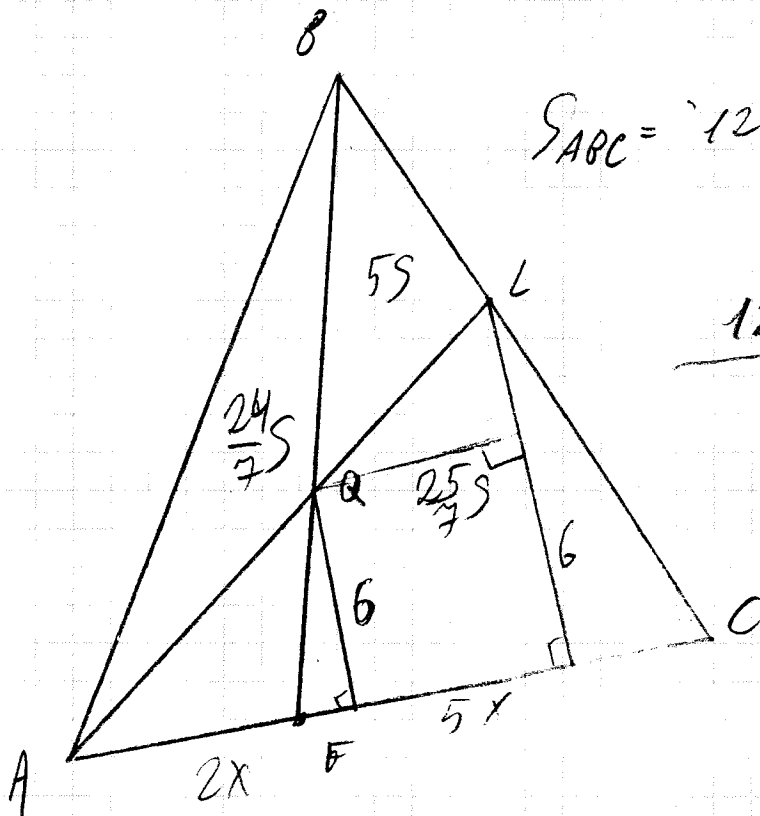 B
S_ABC = 12
5S
L
12
24/7 S
Q
25/7 S
6
6
C
5x
E
2x
A